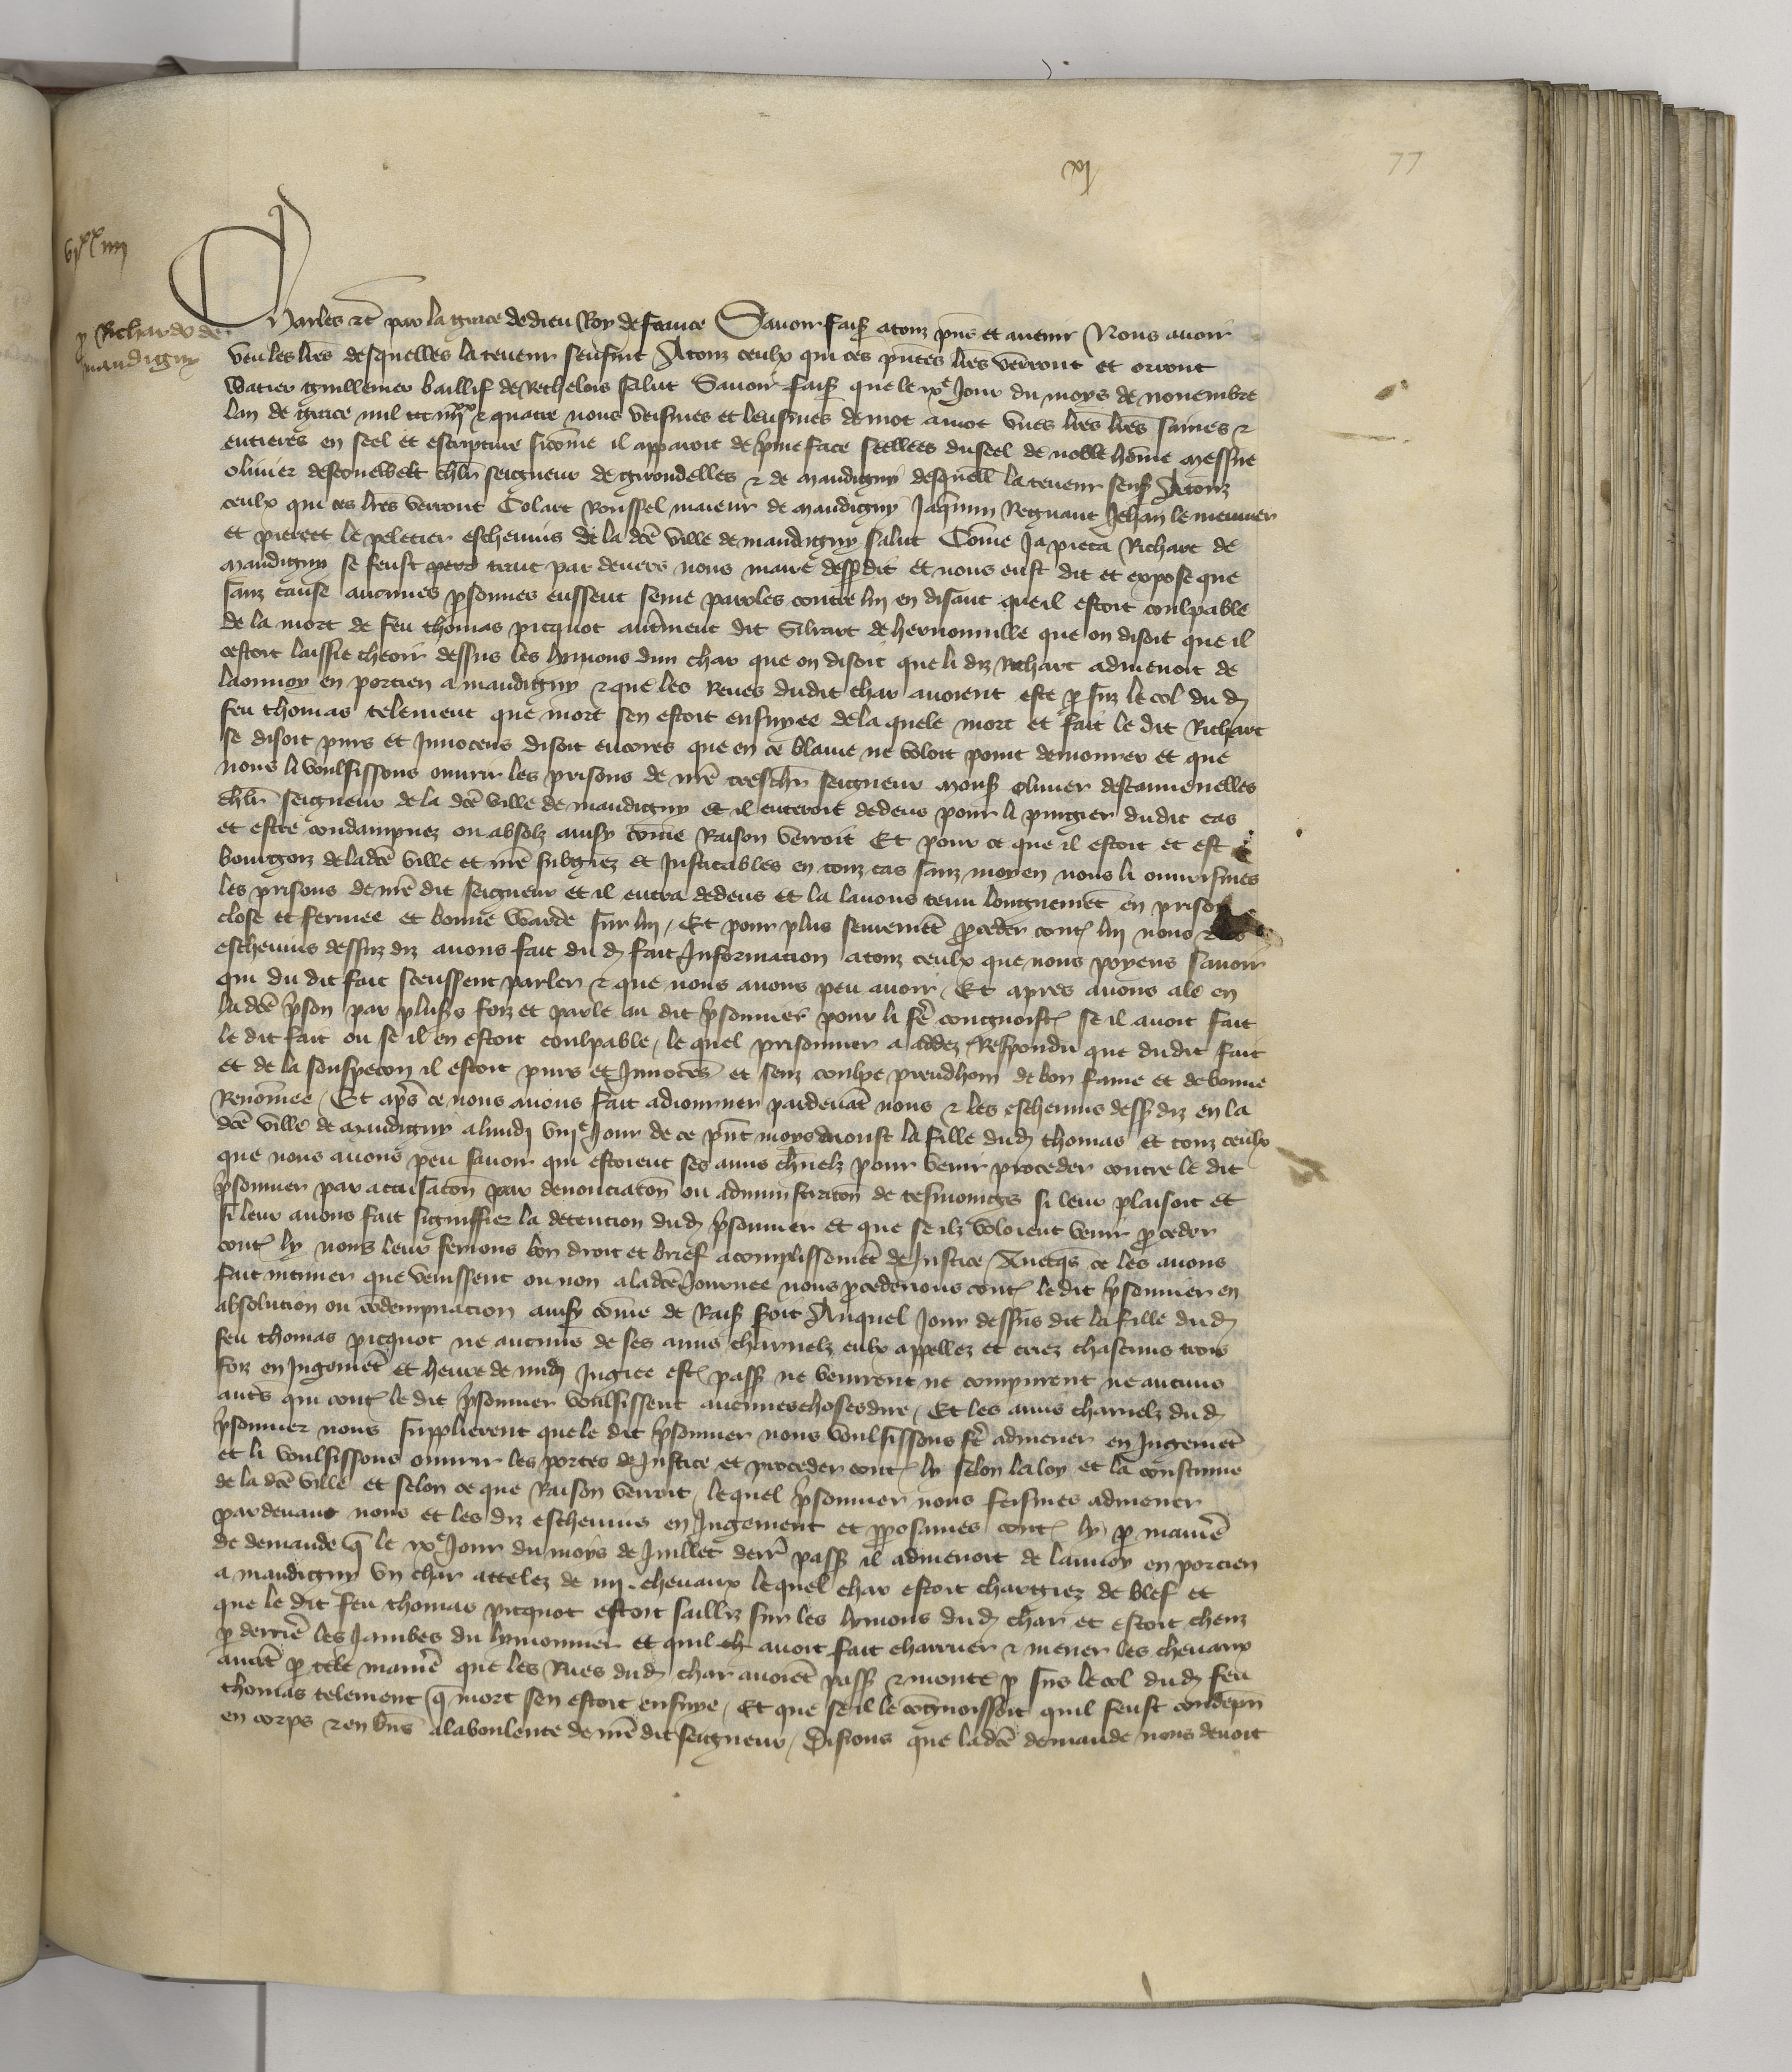 lx
77
vjxx iiij
p Richardo de
mandigny
Charles etc par la grace de dieu Roy de france Savoir fais atouz pns et avenir Nous avoir
veu les lres desquelles la teneur sensuit Atouz ceulx qui ces pntes lres verront et orront
Watier guillemer baillif de Rethelois salut Savoir fais que le ixe Jour du moys de novembre
lan de grace mil ccc iiijxx & quatre nous veismes et leusmes de mot amot unes lres lres saines &
entieres en seel et escripture sicome il apparoit de pme face seellees du seel de noble home messire
olivier chlr seigneur de girondelles & de mandigny desquell la teneur sens Atouz
ceulx qui ces lres verront Colart Roussel maieur de mandigny Jaquemin Regnaut Jehan le meunier
et pierett le peletier eschevins de la dce ville de mandigny salut Come Ja pieca Richart de
mandigny se feust trait par devers nous maire dessdit et nous eust dit et expose que
sanz cause aucunes psonnes eussent seme paroles contre luy en disant que il estoit coulpable
de la mort de feu thomas picquot autment dit Silvart de hernonville que on disoit que il
cestoit laissie cheoir dessus les lymons dun char que on disoit que li diz Richart admenoit de
launoy en porcien a mandigny & que les Reues dudit char avoient este p sus le col du d
feu thomas telement que mort sen estoit ensuyee de la quele mort et fait le dit Richart
se disoit purs et Innocens disoit encores que en ce blame ne voloit point demourer et que
nous li voulsissons ouvrir les prisons de nre treschr seigneur mons olivier
chlr seigneur de la dce ville de mandigny et il enteroit dedens pour li purgier dudit cas
et estre condampnez ou absolz ainsy come Raison verroit Et pour ce que il estoit et est
bourgois de ladce ville et nre subgiez et Justicables en touz cas sanz moyen nous li ouvrismes
les prisons de nre dit seigneur et il entra dedens et la lavons tenu longuemet en prison
close et fermee et bonne warde sur luy / Et pour plus seuremet pceder cont luy nous
eschevins dessuz diz avons fait du d fait Informacion atouz ceulx que nous poyens savoir
qui du dit fait sceussent parler & que nous avons peu avoir / Et apres avons ale en
la dce pson par plus foiz et parle au dit psonnier pour li fe congnoist se il avoit fait
le dit fait ou se il en estoit coulpable / le quel prisonnier a addez Respondu que dudit fait
et de la souspecon il estoit purs et Innoces et senz coulpe preudhom de bon fame et de bonne
Renomee / Et aps ce nous avons fait adiourner pardevat nous & les eschevins dess diz en la
dce ville de mandigny alundi viije Jour de ce pnt moys daoust la fille dud thomas et touz ceulx
que nous avons peu savoir qui estoient ses amis chnelz pour venir proceder contre le dit
psonnier par accusaton par denonciaton ou administraton de tesmoings si leur plaisoit et
si leur avons fait signiffier la detencion dud psonnier et que se ilz voloient venir pceder
cont ly nous leur ferions bon droit et brief acomplissemet de Justice / Avecqs ce les avons
fait intimer que venissent ou non a ladce Journee nous pcederions cont le dit psonnier en
absolucion ou codempnacion ainsy come de Rais soit Auquel Jour dessus dit la fille dud
feu thomas picquot ne aucuns de ses amis charnelz eulx appellez et criez chascuns trois
foiz en Jugemet et heure de midi Jugiee est pass ne venirent ne compurent ne aucuns
auts qui cont le dit psonnier voulsissent aucunes choses dire / Et les amis charnelz dud
psonnier nous supplierent que le dit psonnier nous voulsissons fe admener en Jugemet
et li voulsissons ouvrir les portes de Justice et proceder cont ly selon la loy et la coustume
de la dce ville et selon ce que Raison verroit / lequel psonnier nous feismes admener
pardevant nous et les diz eschevins en Jugement et pposames cont ly p manie
de demande q le ixe Jour du moys de Juillet derr pass il admenoit de launoy en porcien
a mandigny un char attelez de iiij chevaux lequel char estoit chargiez de blef et
que le dit feu thomas picquot estoit sailliz sur les lymons dud char et estoit cheuz
p derrie les Jambes du lymonnier et quil avoit fait charrier & mener les chevaux
avat p tele manie que les Rues dud char avoiet pass & monte p sus le col dud feu
thomas telement q mort sen estoit ensuye / Et que se il le cognoissoit quil feust condepn
en corps & en bns a la voulente de nre dit seigneur / Disions que ladce demande nous devoit